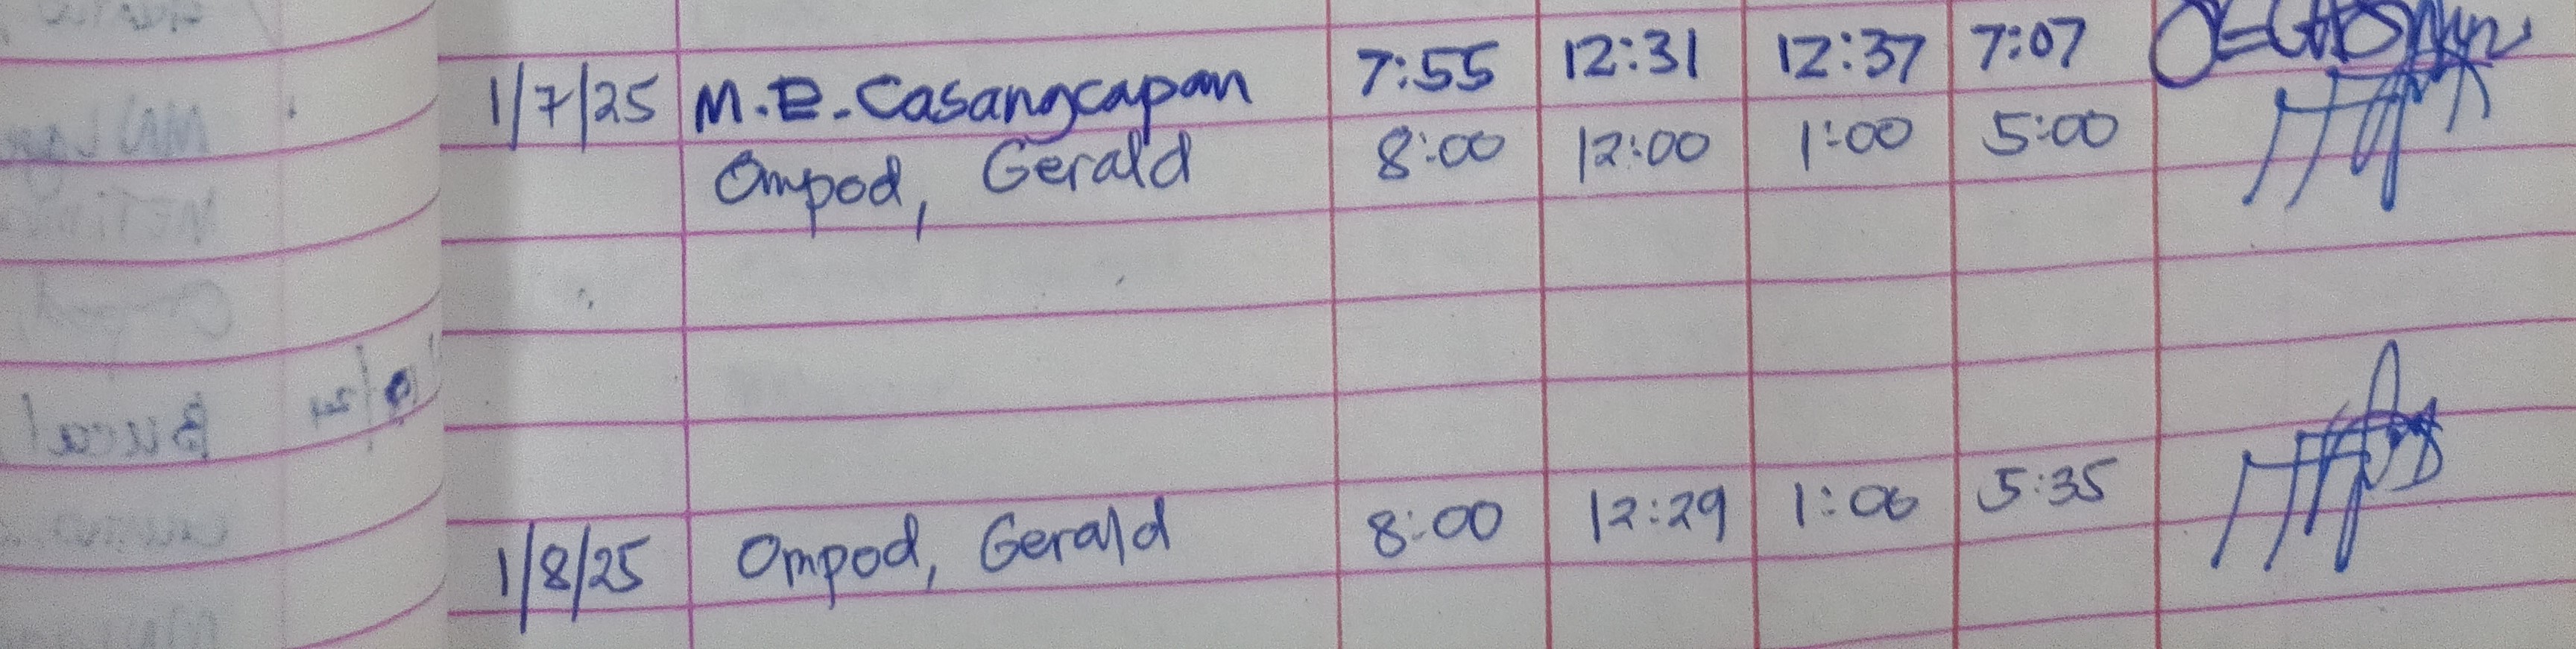 1/7/25 M.E. Casangcapan 7:55 12:31 12:37 7:07
Ompod, Gerald 8:00 12:00 1:00 5:00
1/8/25 Ompod, Gerald 8:00 12:29 1:00 5:35